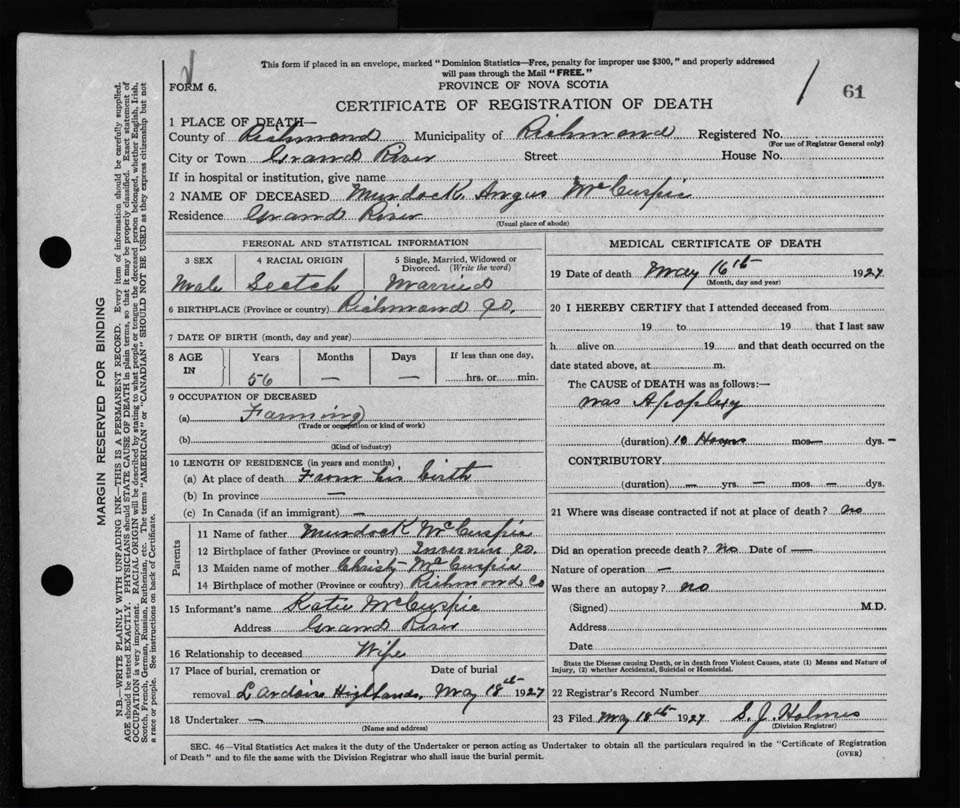 This form if placed in an envelope, marked "Dominion Statistics—Free, penalty for improper use $300," and properly addressed
will pass through the Mail "FREE."
FORM 6.
PROVINCE OF NOVA SCOTIA
61
CERTIFICATE OF REGISTRATION OF DEATH
1 PLACE OF DEATH—
County of Richmond Municipality of Richmond Registered No.
(For use of Registrar General only)
City or Town Grand River Street House No.
If in hospital or institution, give name
2 NAME OF DECEASED Murdock Angus McCuspic
Residence Grand River
(Usual place of abode)
PERSONAL AND STATISTICAL INFORMATION
3 SEX 4 RACIAL ORIGIN 5 Single, Married, Widowed or
Divorced. (Write the word)
Male Scotch Married
6 BIRTHPLACE (Province or country) Richmond Co.
7 DATE OF BIRTH (month, day and year)
8 AGE IN Years Months Days If less than one day,
56 — — hrs. or min.
9 OCCUPATION OF DECEASED
(a) Farming
(Trade or occupation or kind of work)
(b)
(Kind of industry)
10 LENGTH OF RESIDENCE (in years and months)
(a) At place of death From his birth
(b) In province —
(c) In Canada (if an immigrant) —
Parents
11 Name of father Murdock McCuspic
12 Birthplace of father (Province or country) Inverniss Co.
13 Maiden name of mother Christy McCuspic
14 Birthplace of mother (Province or country) Richmond Co
15 Informant's name Katie McCuspic
Address Grand River
16 Relationship to deceased Wife
17 Place of burial, cremation or Date of burial
removal L'Ardoise Highlands, May 18th 1927
18 Undertaker —
(Name and address)
MEDICAL CERTIFICATE OF DEATH
19 Date of death May 16th 1927
(Month, day and year)
20 I HEREBY CERTIFY that I attended deceased from
19 to 19 that I last saw
h alive on 19 and that death occurred on the
date stated above, at m.
The CAUSE of DEATH was as follows:—
was Apoplexy
(duration) 10 Hours mos— dys. –
CONTRIBUTORY
(duration) — yrs. – mos. – dys.
21 Where was disease contracted if not at place of death? no
Did an operation precede death? no Date of —
Nature of operation —
Was there an autopsy? no
(Signed) M.D.
Address
Date
State the Disease causing Death, or in death from Violent Causes, state (1) Means and Nature of
Injury, (2) whether Accidental, Suicidal or Homicidal.
22 Registrar's Record Number
23 Filed May 18th 1927 S. J. Holmes
(Division Registrar)
SEC. 46—Vital Statistics Act makes it the duty of the Undertaker or person acting as Undertaker to obtain all the particulars required in the "Certificate of Registration
of Death" and to file the same with the Division Registrar who shall issue the burial permit.
(OVER)
MARGIN RESERVED FOR BINDING
N.B.—WRITE PLAINLY WITH UNFADING INK—THIS IS A PERMANENT RECORD. Every item of information should be carefully supplied.
AGE should be stated EXACTLY. PHYSICIANS should STATE CAUSE OF DEATH in plain terms, so that it may be properly classified. Exact statement of
OCCUPATION is very important. RACIAL ORIGIN will be described by stating to what people or tongue the deceased person belonged, whether English, Irish,
Scotch, French, German, Russian, Ruthenian, etc. The terms "AMERICAN" or "CANADIAN" SHOULD NOT BE USED as they express citizenship but not
a race or people. See instructions on back of Certificate.